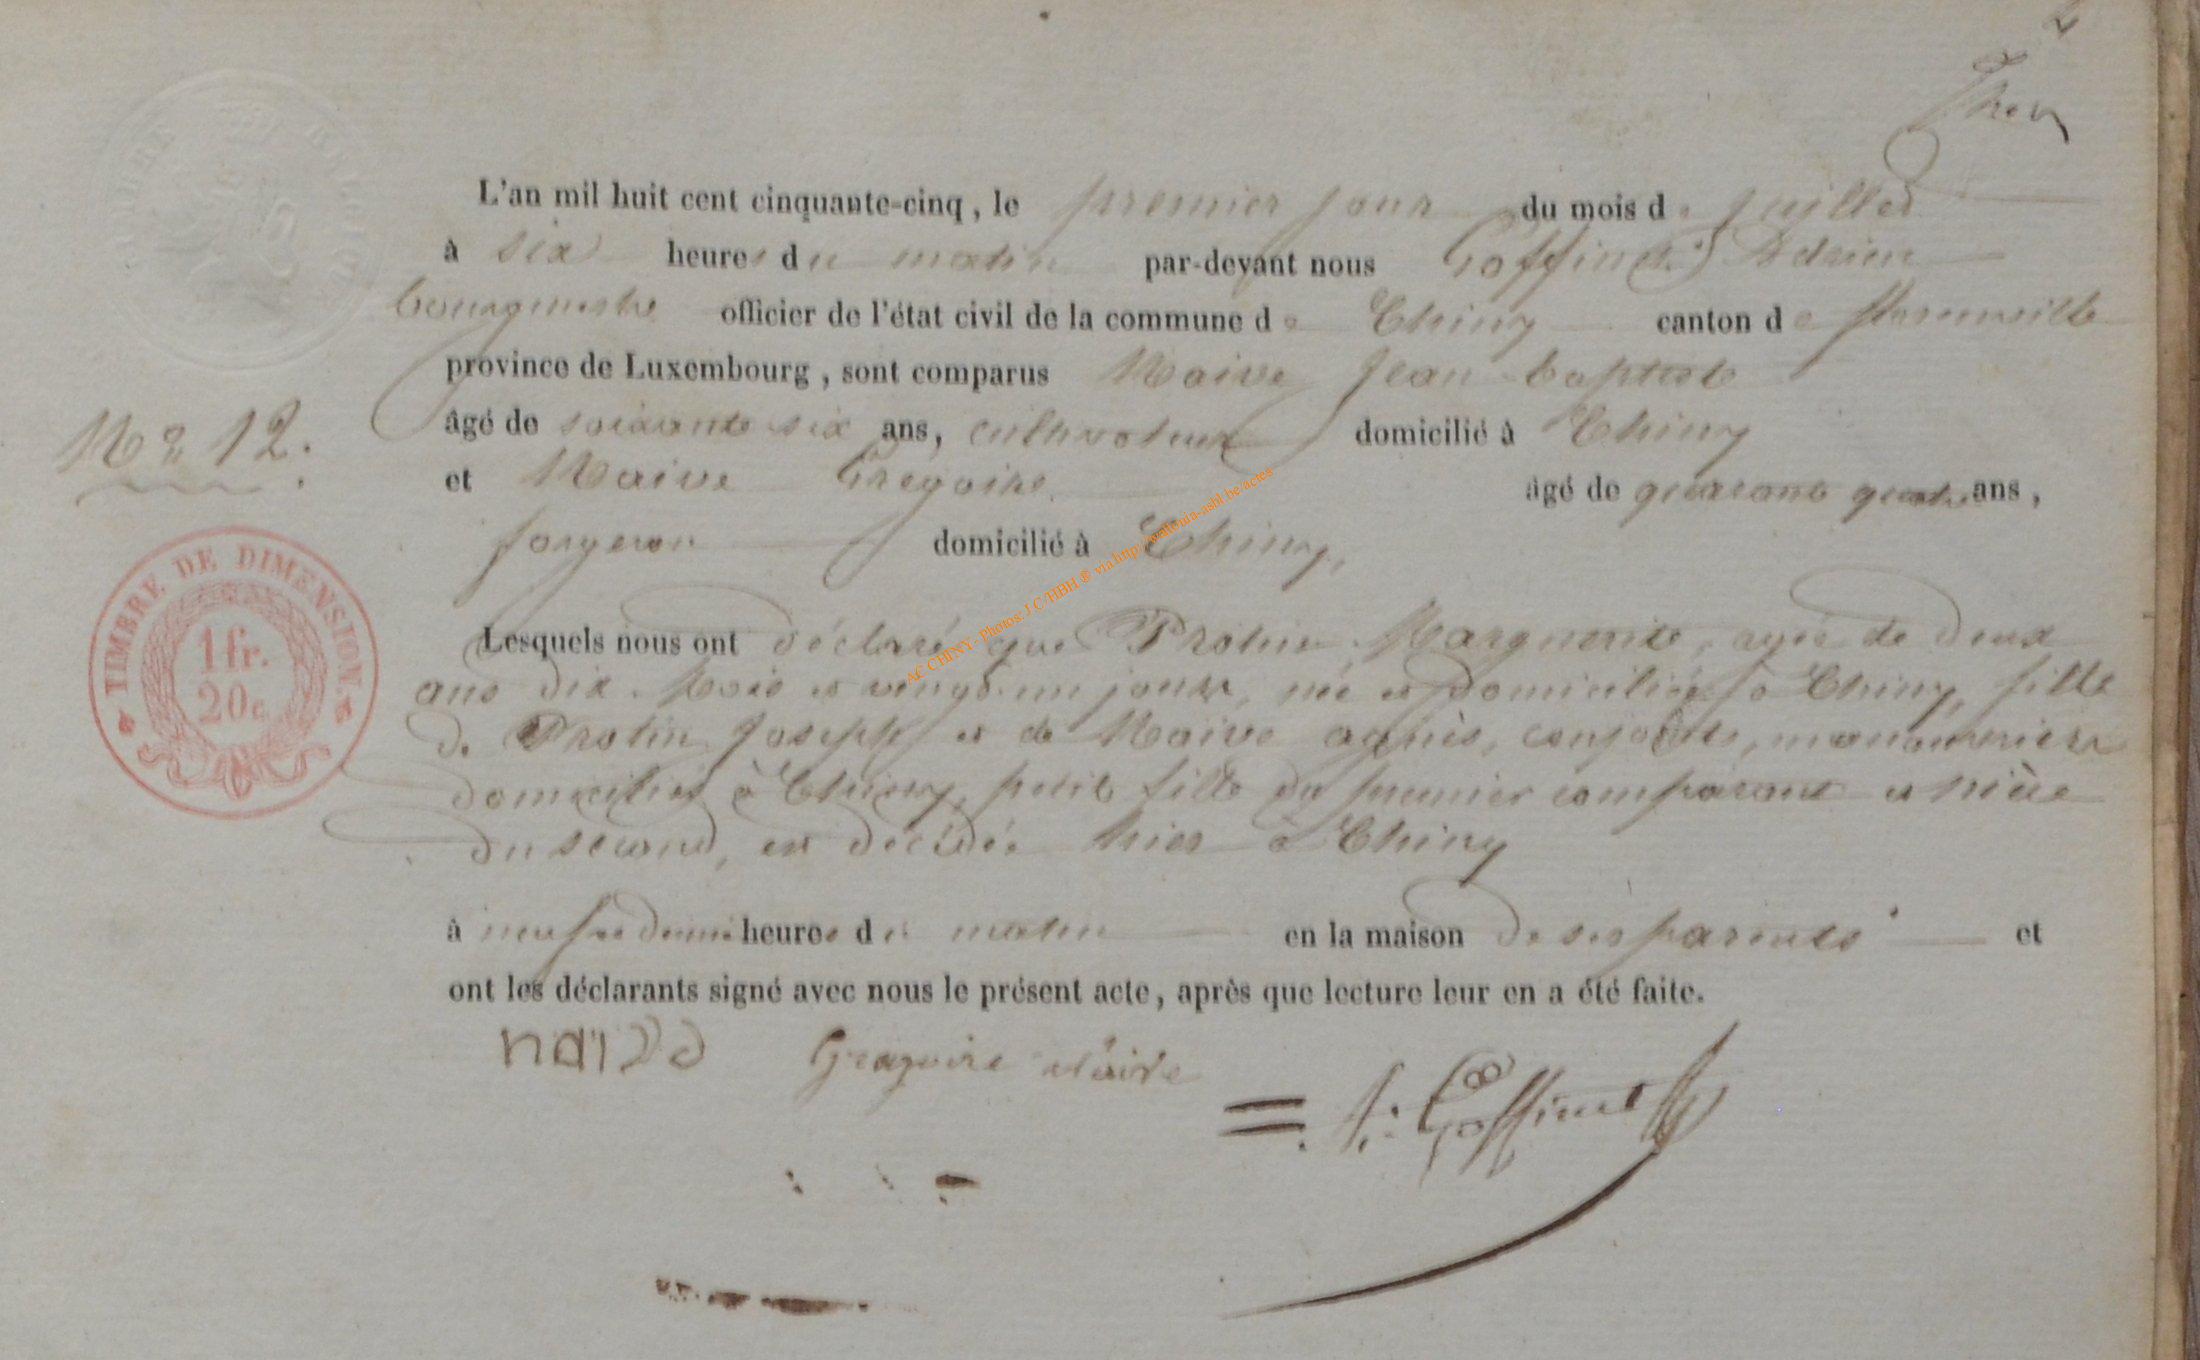 L'an mil huit cent cinquante-cinq, le premier jour du mois de juillet
à six heures du matin par-devant nous Goffinet Adrien
bourgmestre officier de l'état civil de la commune de Chiny canton de florenville
province de Luxembourg, sont comparus Naive Jean baptiste
âgé de soixante six ans, cultivateur domicilié à Chiny
Nº 12.
et Naive Gregoire âgé de quarante quatre ans,
forgeron domicilié à Chiny,
Lesquels nous ont déclaré que Protin Marguerite, agée de deux
ans dix Mois et vingt un jours, née et domiciliée à Chiny, fille
de Protin Joseph et de Naive agnès, conjoints, manouvriers
domiciliés à Chiny, petite fille du premier comparant et nièce
du second, est décédée hier à Chiny
à neuf et demie heures du matin en la maison de ses parents et
ont les déclarants signé avec nous le présent acte, après que lecture leur en a été faite.
Gregoire Naive
A: Goffinet
TIMBRE DE DIMENSION
1 fr.
20c
AC CHINY - Photos: J C/HBH ® via http://wallonia-asbl.be/actes